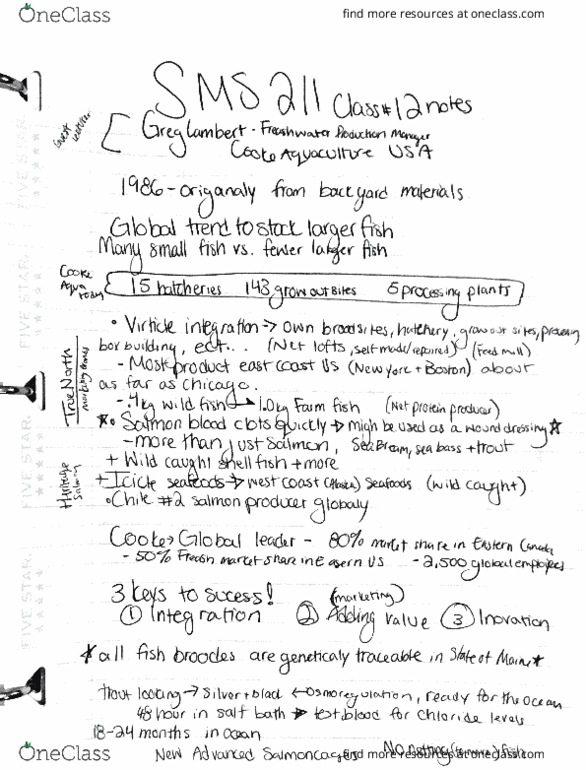 OneClass
find more resources at oneclass.com
SMS 211 Class #12 notes
Guest lecturer
Greg Lambert - Freshwater Production Manager
Cooke Aquaculture USA
1986 - origanaly from backyard materials
Global trend to stock larger fish
Many small fish vs. fewer larger fish
Cooke Aqua today
15 hatcheries 143 grow out sites 5 processing plants
• Virticle integration → Own broodsites, hatchery, grow out sites, processing
box building, ect... (Net lofts, self made/repaired) (Feed mill)
- Most product east coast US (New York + Boston) about
as far as chicago.
TrueNorth
marketing names
- .4kg wild fish → 1.0kg Farm fish (Net protein producer)
* Salmon blood clots quickly → migh be used as a wound dressing *
- more than just Salmon, Sea Bream, sea bass + trout
+ Wild caught shell fish + more
Heritage Salmon
+ Icicle seafoods → west coast (Alaska) Seafoods (wild caught)
• Chile #2 salmon producer globaly
Cooke → Global leader - 80% market share in Eastern Canada
- 50% Fresh market share in Easern US - 2,500 global employees
3 keys to sucess! (marketing)
① Integration ② Adding value ③ Inovation
* all fish broodes are geneticaly traceable in State of Maine *
trout looking → Silver + black ← osmoregulation, ready for the ocean
48 hour in salt bath → test blood for chloride levels
18-24 months in ocean
New Advanced Salmon cages
No netting fish
OneClass
find more resources at oneclass.com
FIVE STAR.
FIVE STAR.
FIVE STAR.
FIVE STAR.